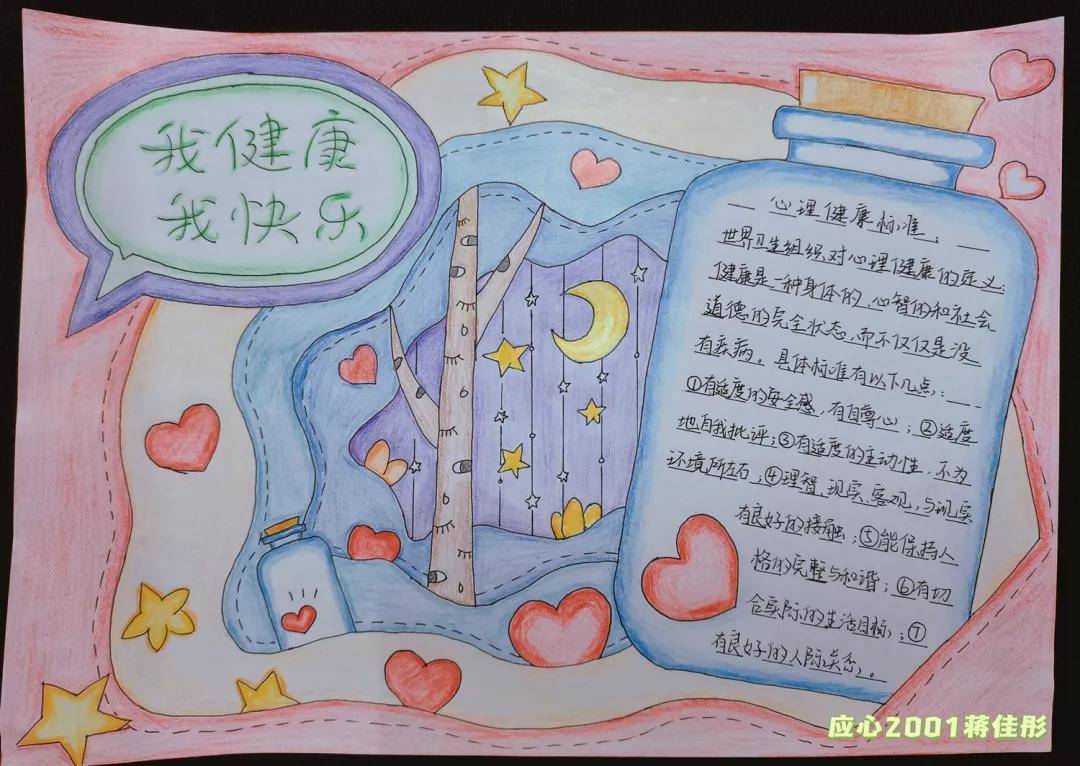 我健康
我快乐
心理健康标准：
世界卫生组织对心理健康的定义：
健康是一种身体的、心智的和社会
道德的完全状态，而不仅仅是没
有疾病。具体标准有以下几点：
①有适度的安全感，有自尊心；②适度
地自我批评；③有适度的主动性，不为
环境所左右；④理智、现实、客观，与现实
有良好的接触；⑤能保持人
格的完整与和谐；⑥有切
合实际的生活目标；⑦
有良好的人际关系。
应心2001蒋佳彤